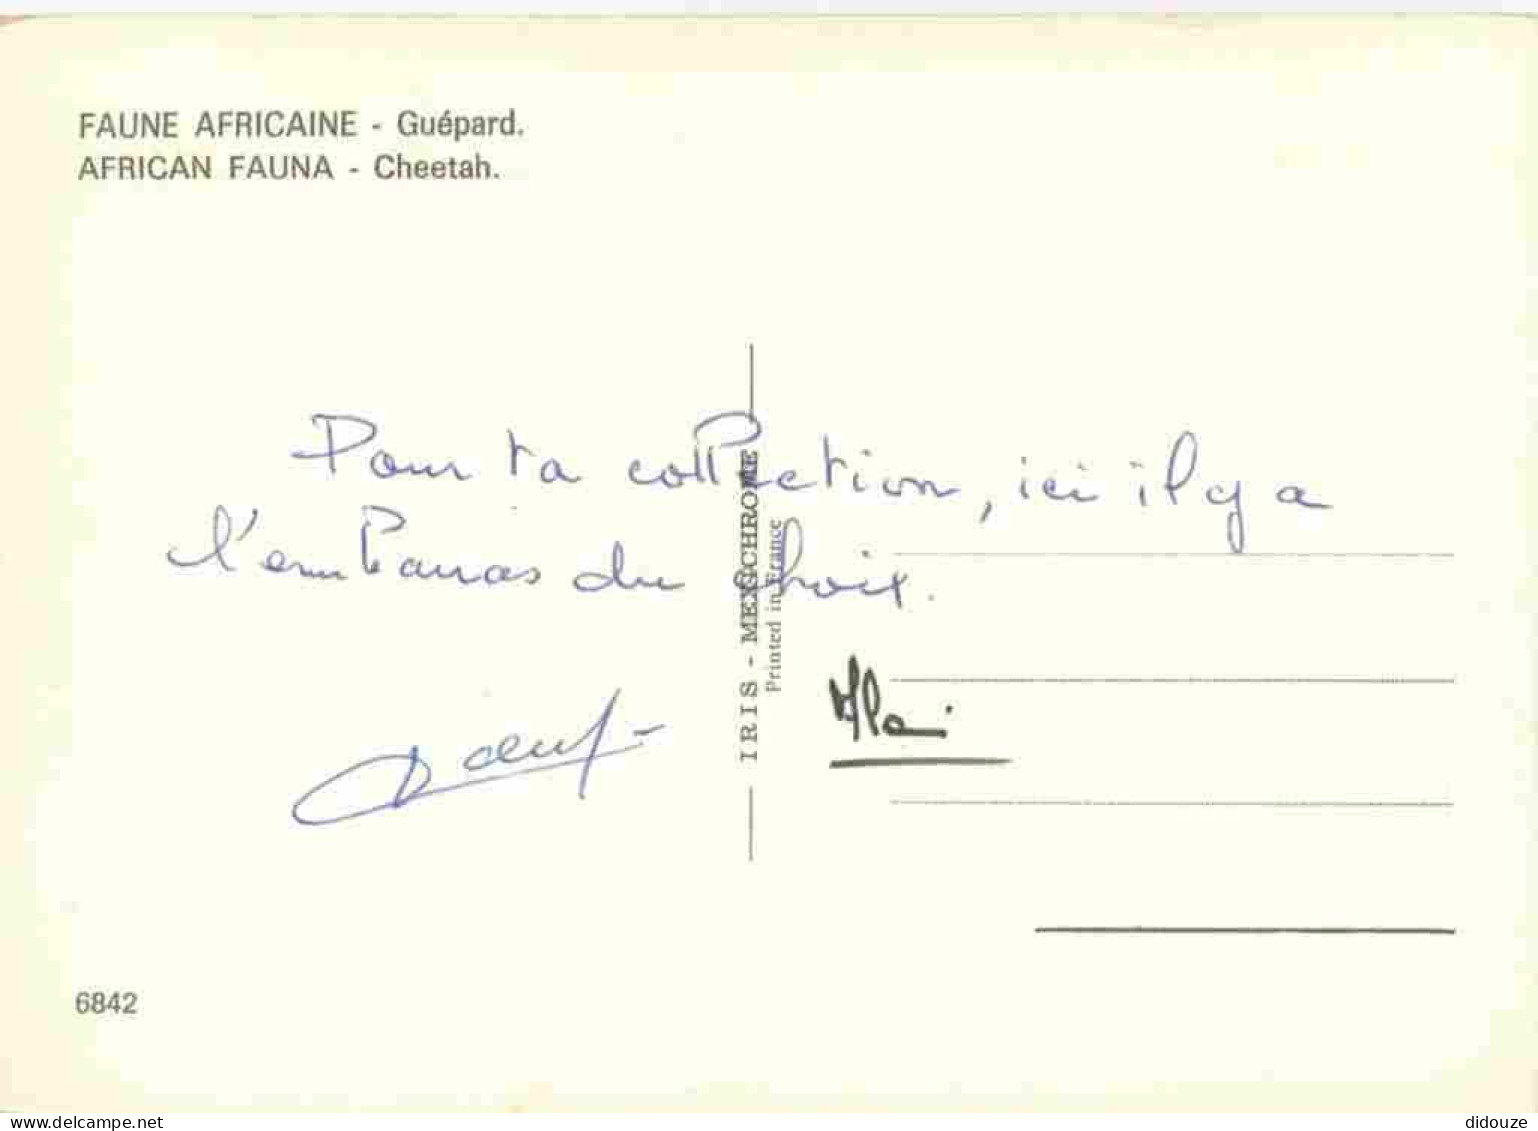 FAUNE AFRICAINE - Guépard.
AFRICAN FAUNA - Cheetah.
Pour ta collection, ici il y a
l'embarras du choix.
IRIS - MEXICHROME
Printed in France
6842
delcampe.net
didouze